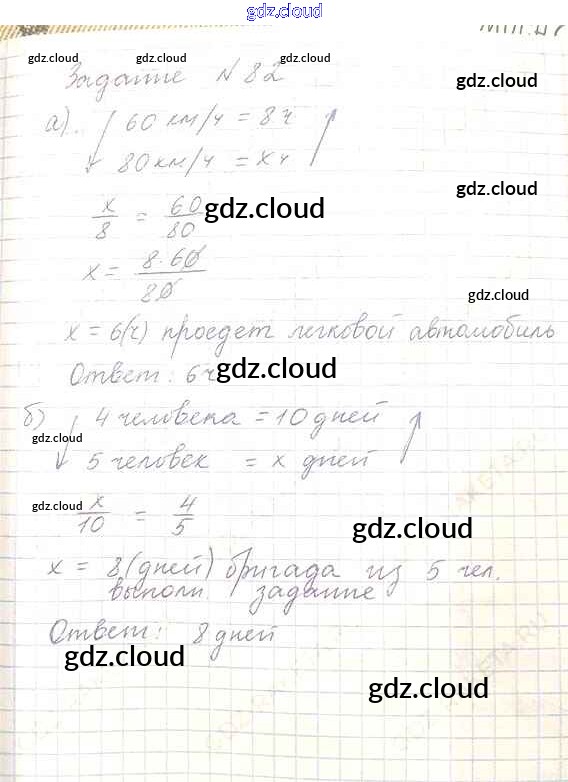 gdz.cloud
gdz.cloud gdz.cloud
Задание N 82
gdz.cloud
а) 60 км/ч = 8 ч
80 км/ч = x ч
gdz.cloud
x/8 = 60/80
gdz.cloud
x = 8·60/80
gdz.cloud
x = 6(ч) проедет легковой автомобиль
Ответ: 6ч
gdz.cloud
б) 4 человека = 10 дней
gdz.cloud
5 человек = x дней
gdz.cloud
x/10 = 4/5
gdz.cloud
x = 8 (дней) бригада из 5 чел.
выполн. задание
Ответ: 8 дней
gdz.cloud
gdz.cloud